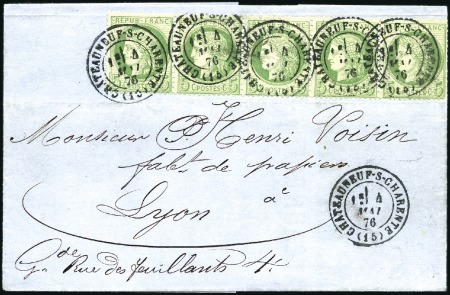 REPUB. FRANC.
POSTES
CHATEAUNEUF-S-CHARENTE (15)
4
MAI
76
Monsieur P Henri Voisin
fabt. de papiers
à
Lyon
Gde. Rue des feuillants 4.
CHATEAUNEUF-S-CHARENTE (15)
4
MAI
76